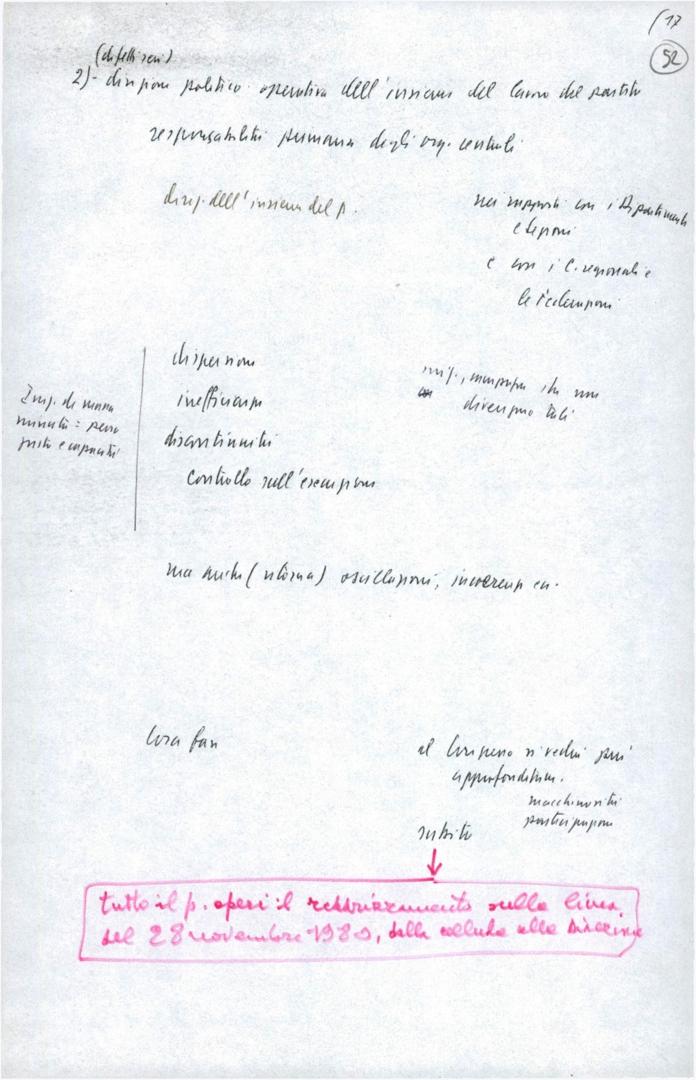 (17
52
(difetti seri)
2) - direzione politico-operativa dell'insieme del lavoro del partito
responsabilità primaria degli org. centrali
dirig. dell'insieme del p.
nei rapporti con i Dipartimenti
e Sezioni
e con i C. regionali e
le Federazioni
dispersione
inefficienza
discontinuità
controllo sull'esecuzione
che non
divengano tali
giuste e capaci
ma anche (ritorna) oscillazioni, incertezze ecc.
Cosa fare
al Congresso si vedrà più
approfonditam.
macchinosità
partecipazione
subito
tutto il p. operi il raddrizzamento sulla linea
del 28 novembre 1980, dalla cellula alla Direzione